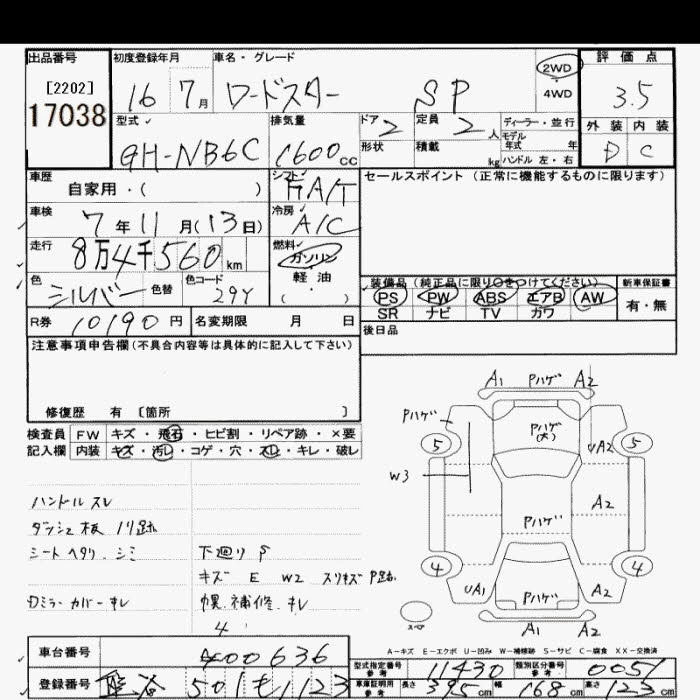 出品番号 [2202] 17038
初度登録年月 16 7月
車名・グレード ロードスター SP
2WD
4WD
評価点 3.5
外装 内装
D C
型式 GH-NB6C
排気量 1600cc
ドア 2
定員 2人
ディーラー・並行
モデル年式 年
形状
積載 kg
ハンドル 左・右
車歴 自家用・( )
シフト FA/T
セールスポイント(正常に機能するものに限ります)
車検 7年11月(13日)
冷房 A/C
走行 8万4千560km
燃料 ガソリン
軽・油
( )
色 シルバー 色替
色コード 29Y
装備品(純正品に限り○をつけてください)
PS PW ABS エアB AW
SR ナビ TV カワ
新車保証書
有・無
R券 10190円
名変期限 月 日
後日品
注意事項申告欄(不具合内容等は具体的に記入して下さい)
修復歴 有 [箇所 ]
検査員記入欄
FW キズ・飛石・ヒビ割・リペア跡・×要
内装 キズ・汚レ・コゲ・穴・スレ・キレ・破レ
ハンドル スレ
ダッシュ板 ノリ跡
シート ヘタリ.シミ
下廻り S
キズ E W2 スリキズ P跡.
Dミラーカバーキレ
幌.補修.キレ
4
A1 Pハゲ A2
Pハゲ
Pハゲ(大)
5 5
UA2
W3
A2
Pハゲ
4 4
UA1 Pハゲ A2
A1 A2
スペア
A-キズ E-エクボ U-凹み W-補修跡 S-サビ C-腐食 XX-交換済
車台番号 400636
型式指定番号 参考 11430
類別区分番号 参考 0051
登録番号 501 も 1123
車庫証明用 参考
長さ 395cm
幅 168cm
高さ 123cm